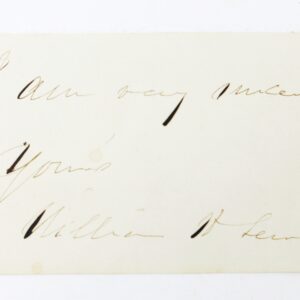 I am very since
Yours
William H Sew